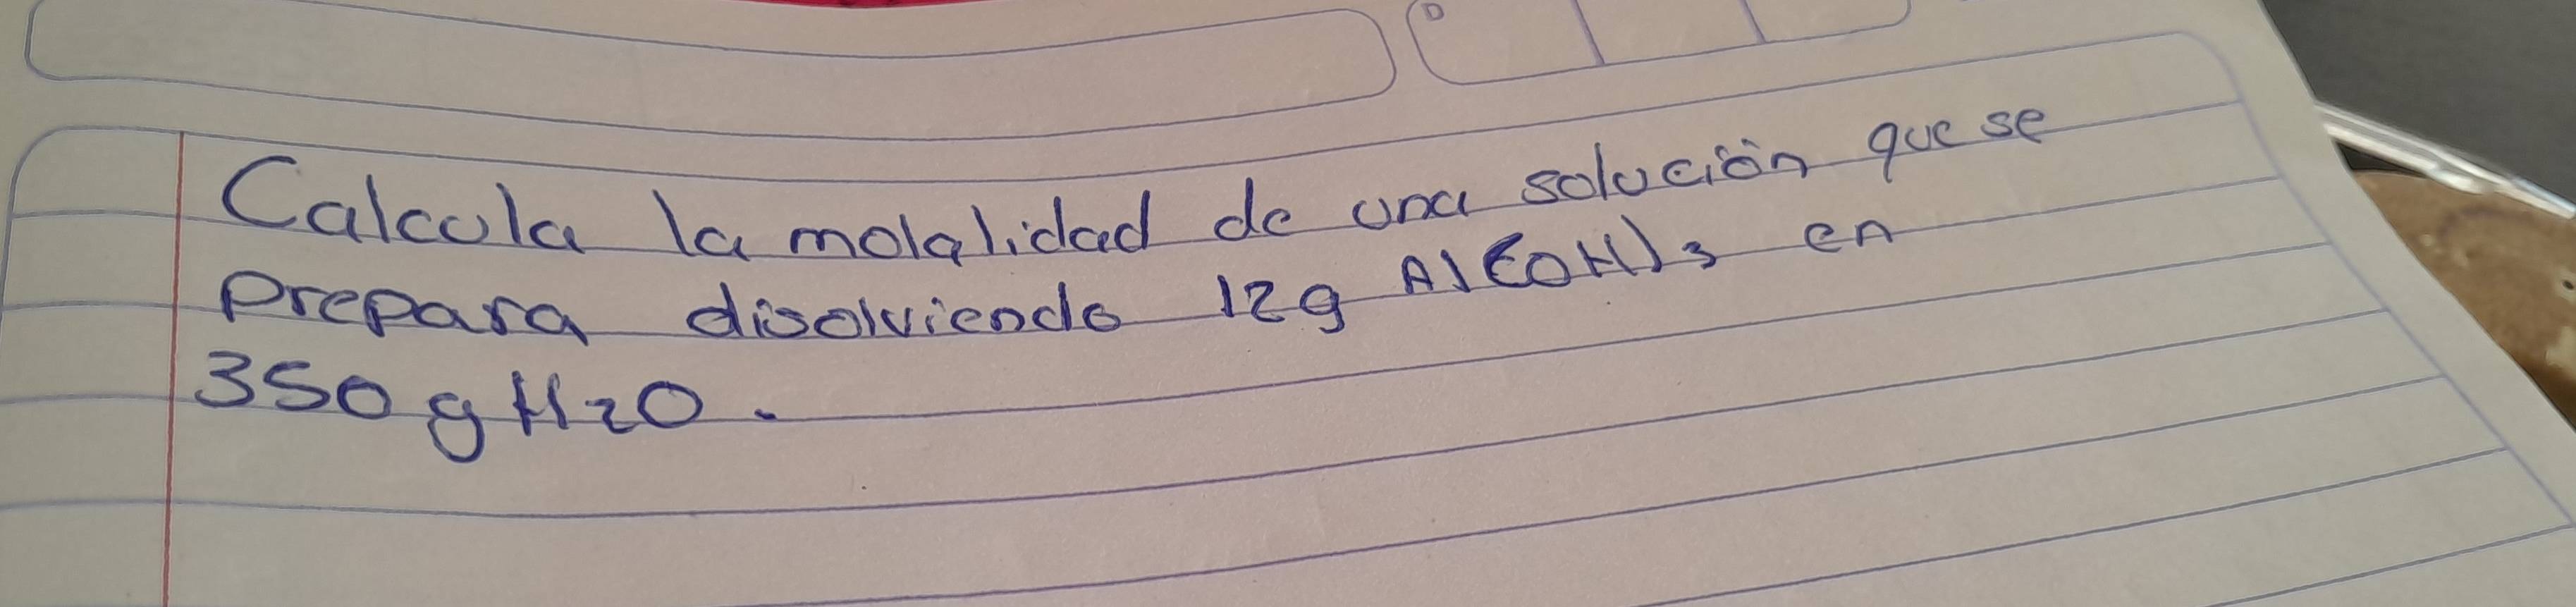 D
Calcula la molalidad de una solución que se
prepara disolviendo 12g Al(OH)3 en
350g H2O.